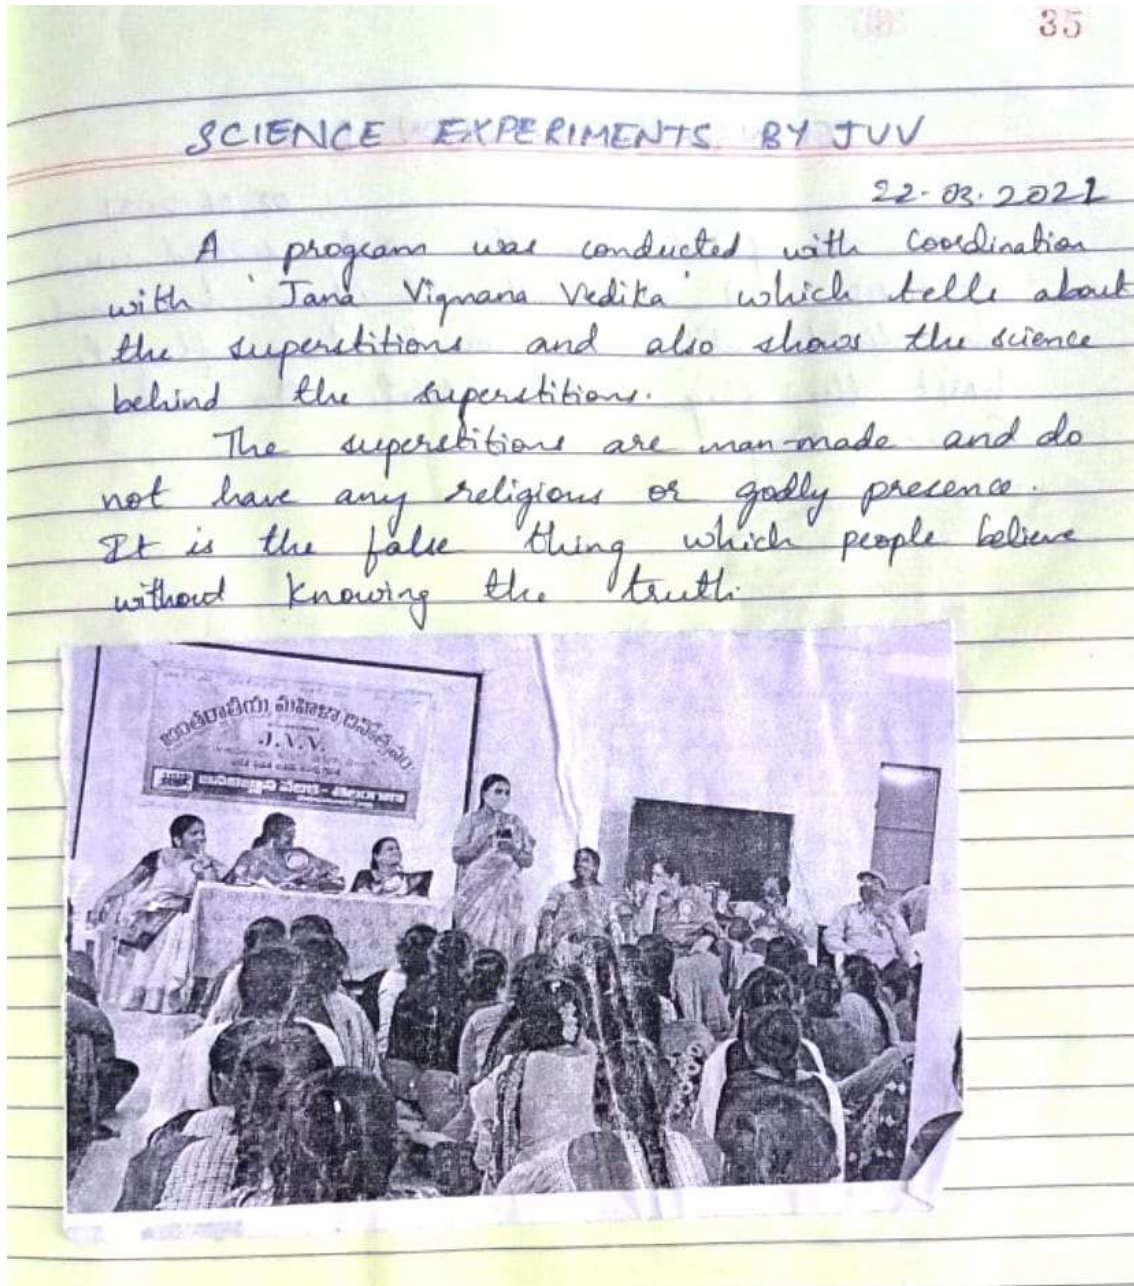 35
SCIENCE EXPERIMENTS BY JVV
22.03.2021
A program was conducted with Coordination
with 'Jana Vignana Vedika' which tells about
the superstitions and also shows the science
behind the superstitions.
The superstitions are man-made and do
not have any religious or godly presence.
It is the false thing which people believe
without knowing the truth.
అంతర్జాతీయ మహిళా దినోత్సవం
J.V.V.
జనవిజ్ఞాన వేదిక - తెలంగాణ